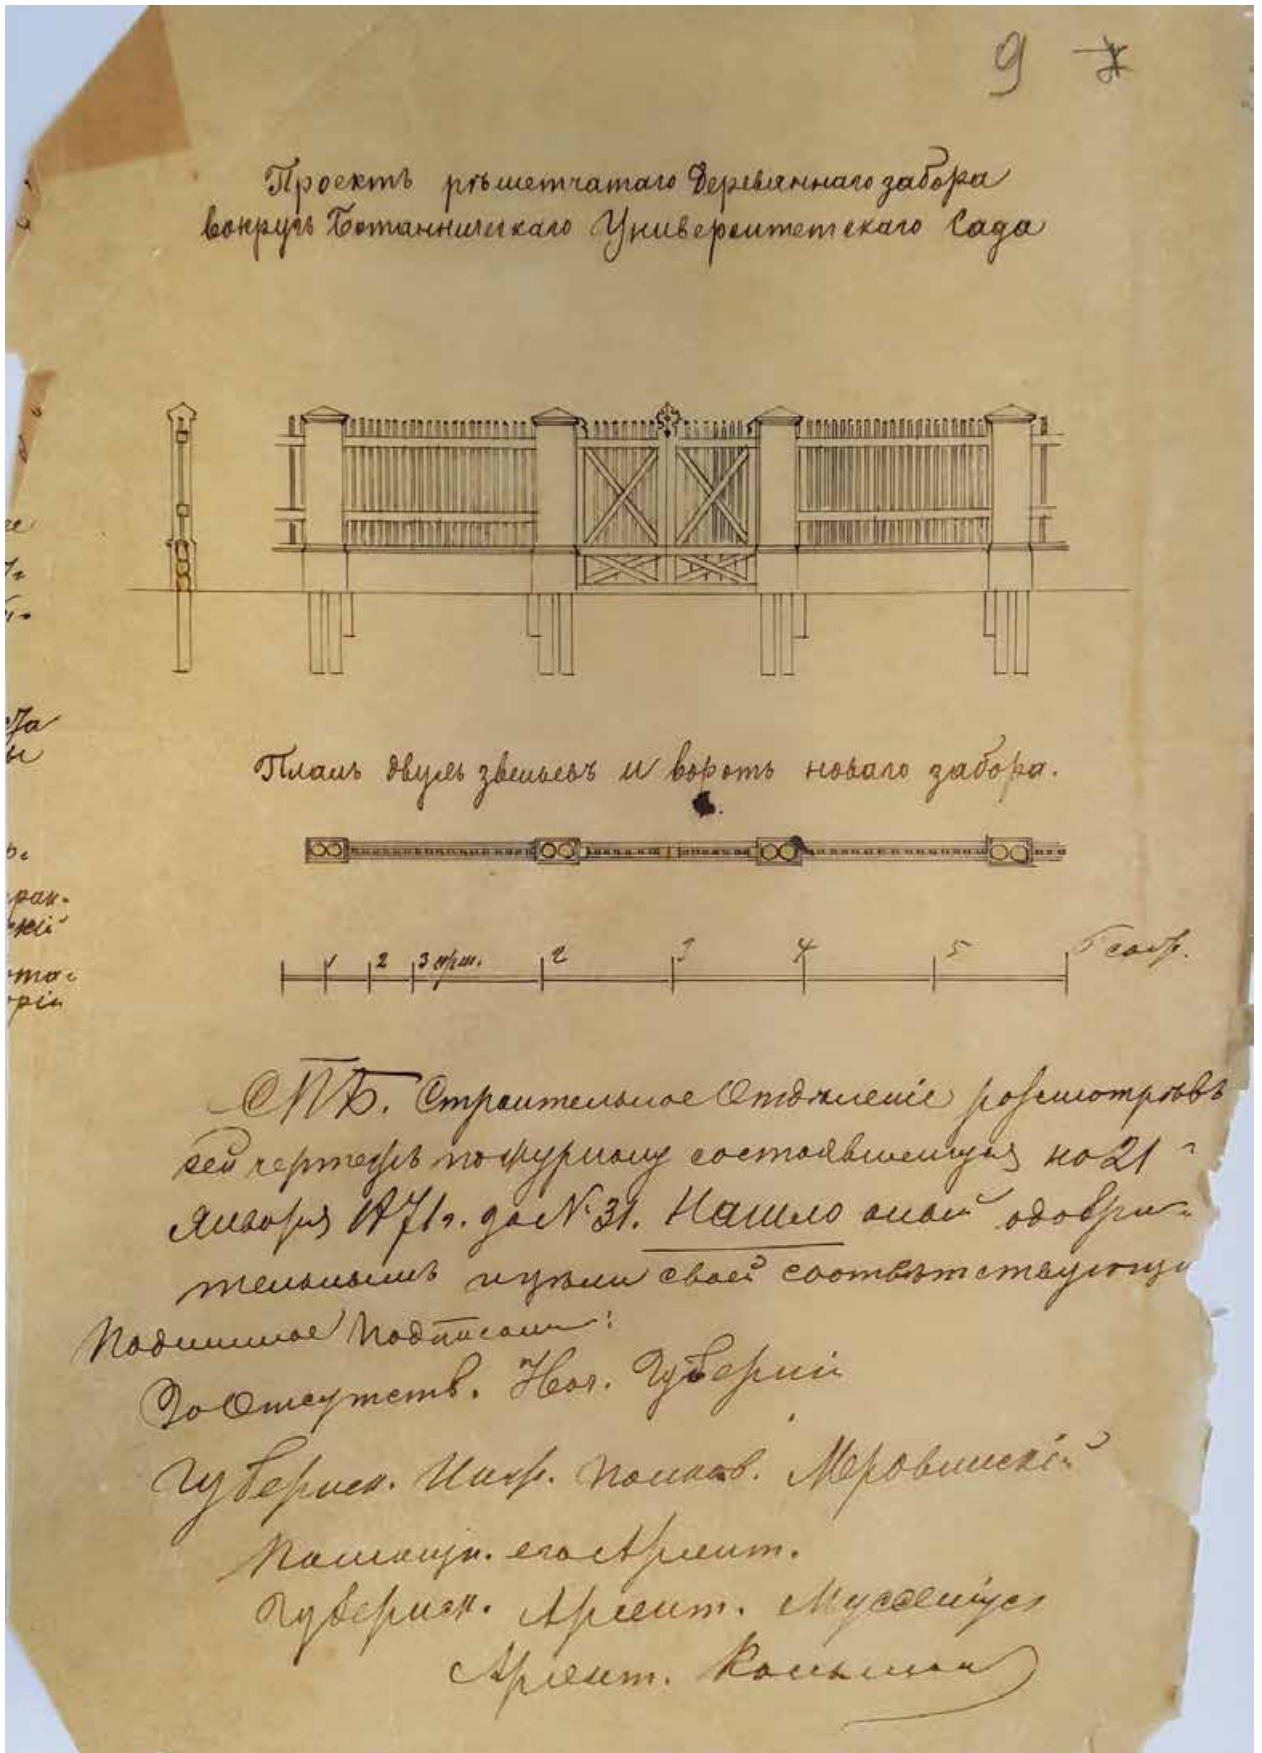 9
Проектъ рѣшетчатаго деревяннаго забора
вокругъ Ботаническаго Университетскаго Сада
Планъ двухъ звеньевъ и воротъ новаго забора.
1 2 3 арш. 2 3 4 5 6 саж.
СПБ. Строительное Отдѣленіе разсмотрѣвъ
сей чертежъ по журналу состоявшемуся на 21
Января 1871 г. за № 31. Нашло оный одобри-
тельнымъ и цѣли своей соотвѣтствующи
Подлинное подписали:
За Отсутств. Нач. Губерніи
Губернск. Инж. Полков. Мѣровинскій
Помощн. его Архит.
Губернск. Архит. Мусселіусъ
Архит.